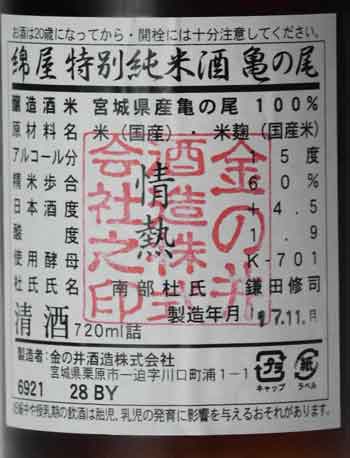 お酒は20歳になってから・開栓には十分注意してください。
綿屋 特別純米酒 亀の尾
醸造酒米 宮城県産亀の尾 100%
原材料名 米(国産)・米麹(国産米)
アルコール分 15度
精米歩合 60%
日本酒度 +4.5
酸度 1.9
使用酵母 K-701
杜氏氏名 南部杜氏 鎌田修司
清酒 720ml詰 製造年月 17.11.月
情熱
金の井酒造株式会社之印
製造者:金の井酒造株式会社
宮城県栗原市一迫字川口町浦1-1
6921 28 BY
キャップ
紙
ラベル
妊娠中や授乳期の飲酒は胎児、乳児の発育に影響を与えるおそれがあります。